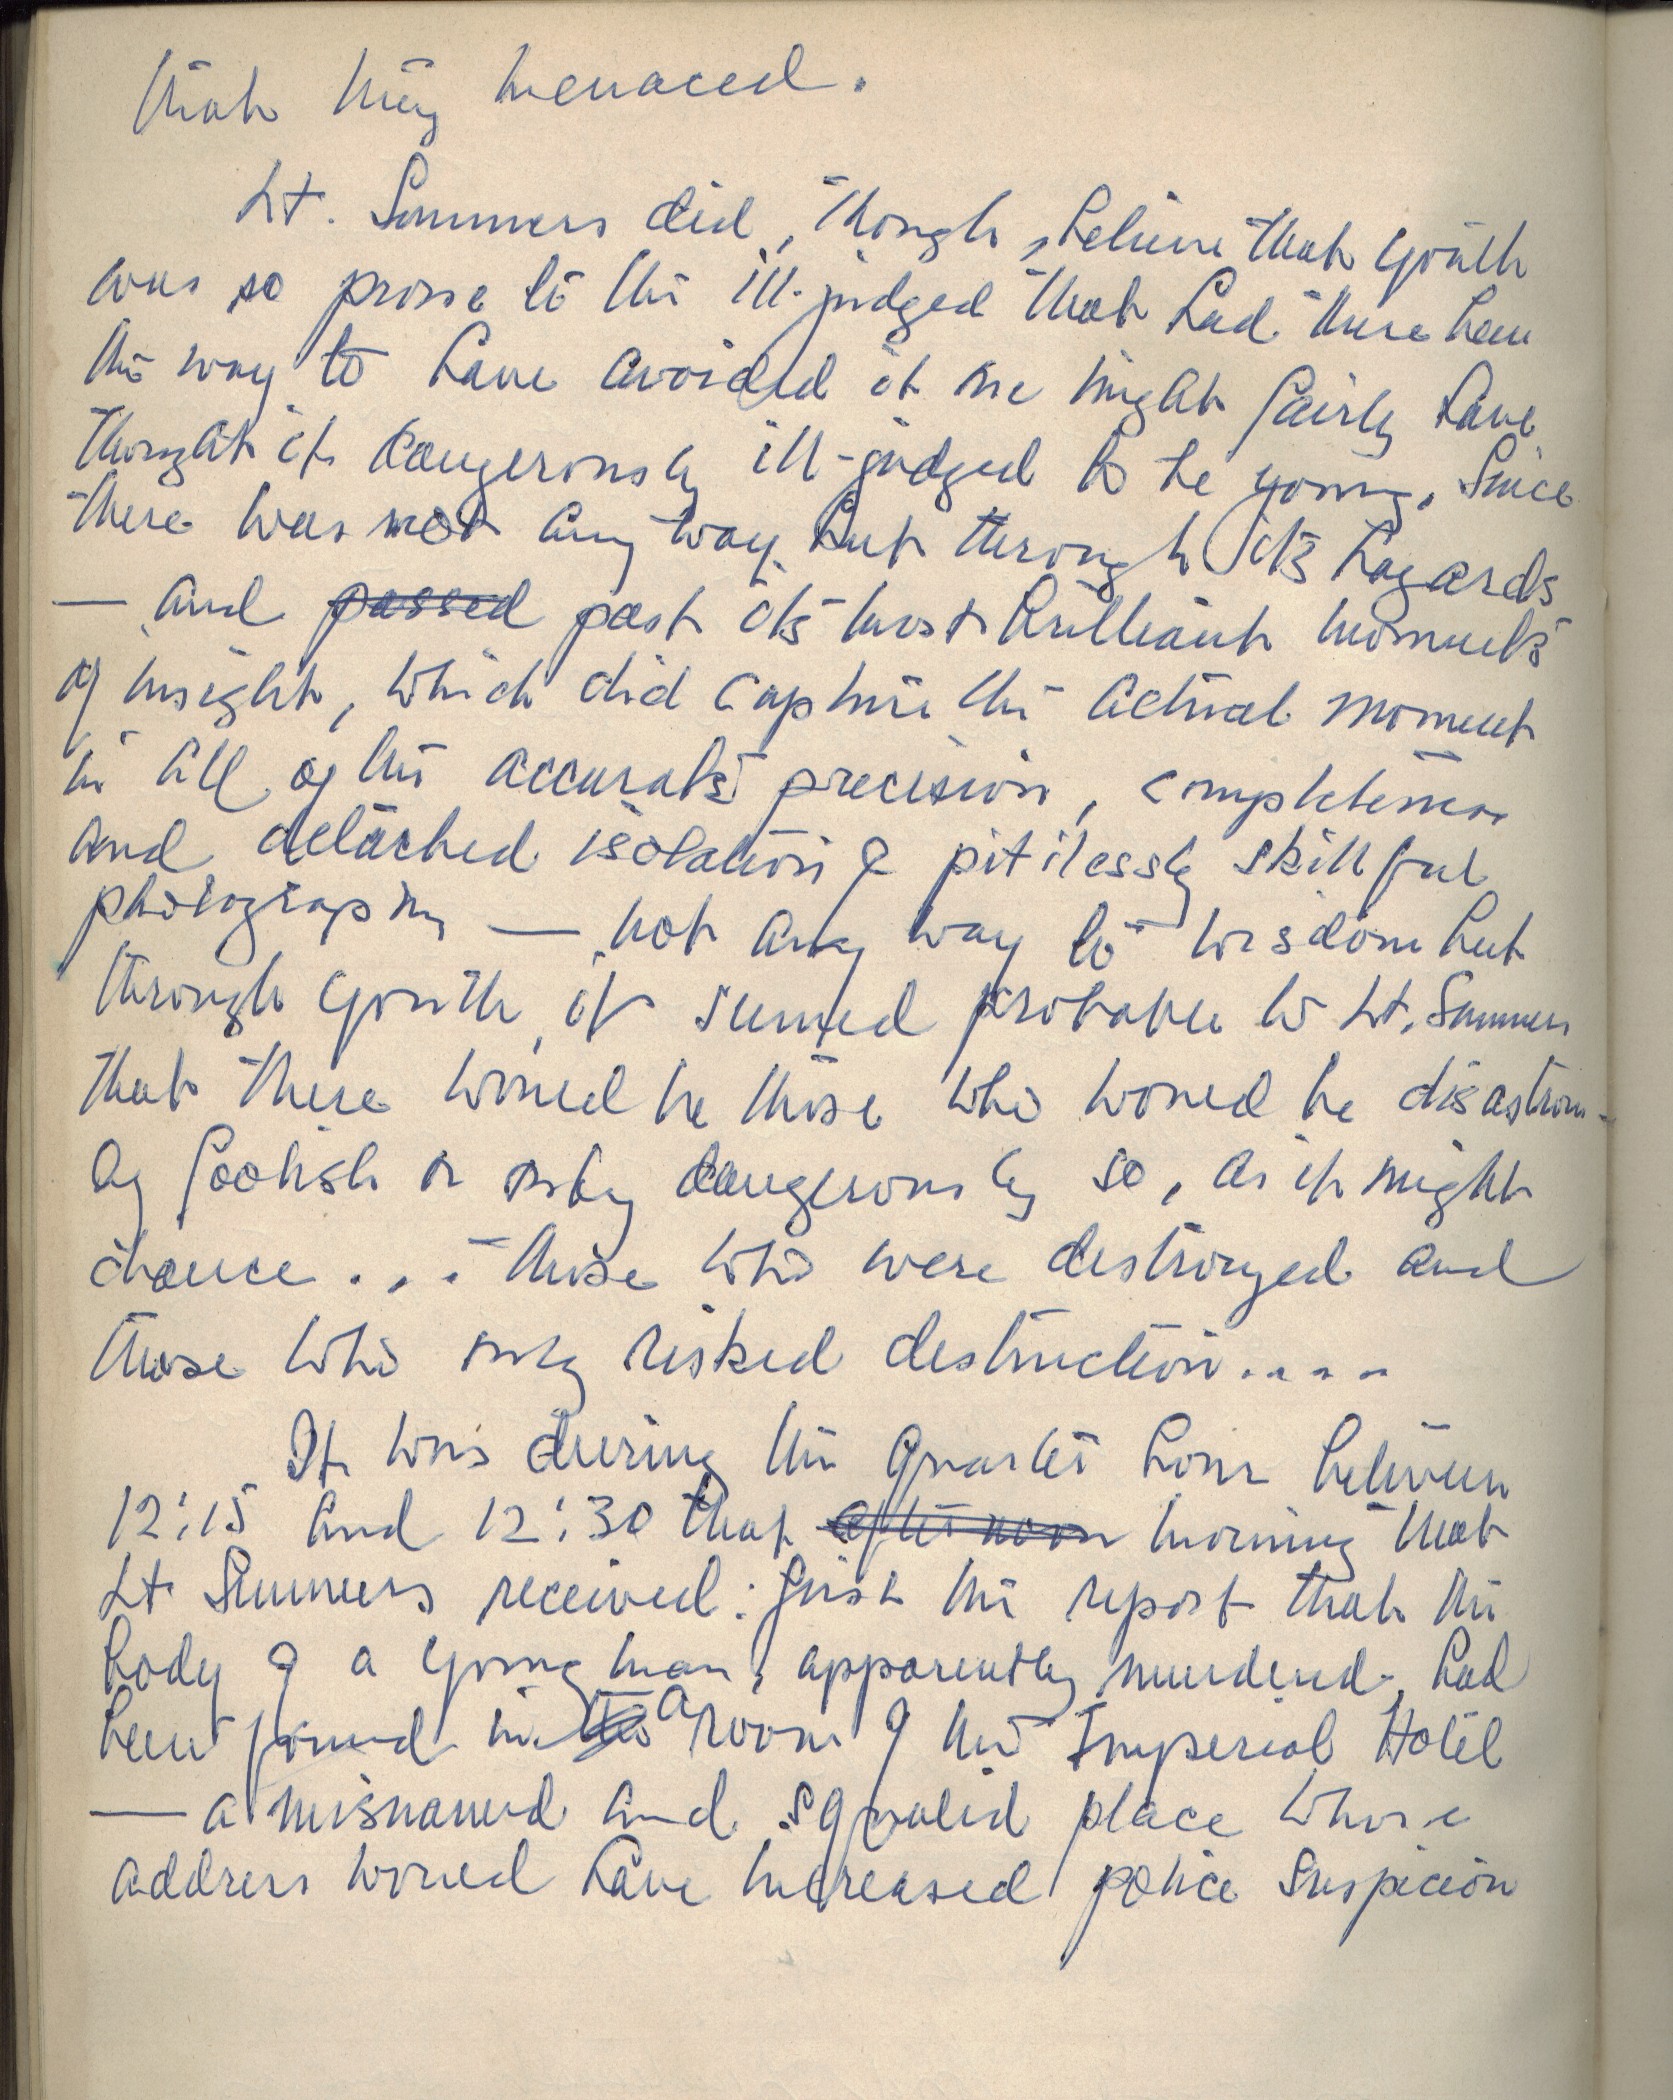 that they menaced.
Lt. Summers did, though, believe that youth
was so prone to the ill-judged that had there been
the way to have avoided it one might fairly have
thought it dangerously ill-judged to be young. Since
there was not any way but through its hazards
— and passed past its most brilliant moments
of insight, which did capture the actual moment
in all of the accurate precision, completeness
and detached isolation of pitilessly skillful
photography — not any way to wisdom but
through youth, it seemed probable to Lt. Summers
that there would be those who would be disastrous-
ly foolish or only dangerously so, as it might
chance . . . those who were destroyed and
those who only risked destruction. . . .
It was during the quarter hour between
12:15 and 12:30 that afternoon morning that
Lt Summers received: first the report that the
body of a young man, apparently murdered, had
been found in the a room of the Imperial Hotel
— a misnamed and squalid place whose
address would have increased police suspicion